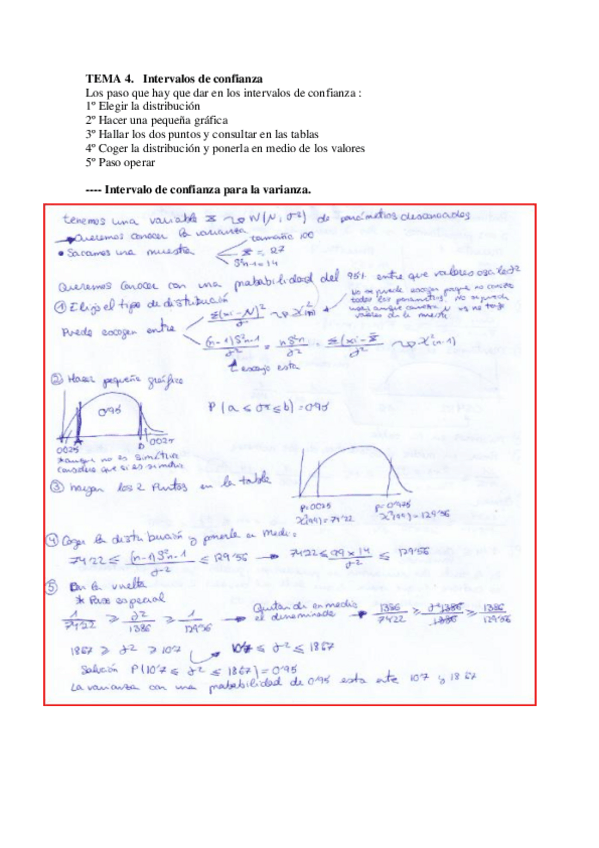 TEMA 4. Intervalos de confianza
Los paso que hay que dar en los intervalos de confianza :
1º Elegir la distribución
2º Hacer una pequeña gráfica
3º Hallar los dos puntos y consultar en las tablas
4º Coger la distribución y ponerla en medio de los valores
5º Paso operar
---- Intervalo de confianza para la varianza.
tenemos una variable X ~> N(N, σ²) de parámetros desconocidos
Queremos conocer la varianza
• Sacamos una muestra
tamaño 100
x̄ = 27
S²n-1 = 14
Queremos conocer con una probabilidad del 95% entre que valores
① Elijo el tipo de distribución
no se puede escoger porque no conozco
todos los parametros
Puedo escoger entre
(n-1)S²n-1 / σ² = nS²n / σ² = Σ(xi - x̄ / σ² ~> χ²(n-1)
escojo esta
② Hacer pequeña gráfica
0'95
P(a ≤ σ² ≤ b) = 0'95
0'025
0'025
aunque no es simétrica
considero que si es simetrica
③ hallan los 2 Puntos en la tabla
P=0'025
χ²(99) = 74'22
P=0'975
χ²(99) = 129'56
④ Coger la distribución y ponerla en medio:
74'22 ≤ (n-1)S²n-1 / σ² ≤ 129'56 → 74'22 ≤ 99 x 14 / σ² ≤ 129'56
⑤ Dar la vuelta
* Paso especial
1/74'22 ≥ σ²/1386 ≥ 1/129'56 → Quitar de en medio el denominador → 1386/74'22 ≥ σ² 1386/1386 ≥ 1386/129'56
18'67 ≥ σ² ≥ 10'7
10'7 ≤ σ² ≤ 18'67
Solución P(10'7 ≤ σ² ≤ 18'67) = 0'95
La varianza con una probabilidad de 0'95 esta entre 10'7 y 18'67